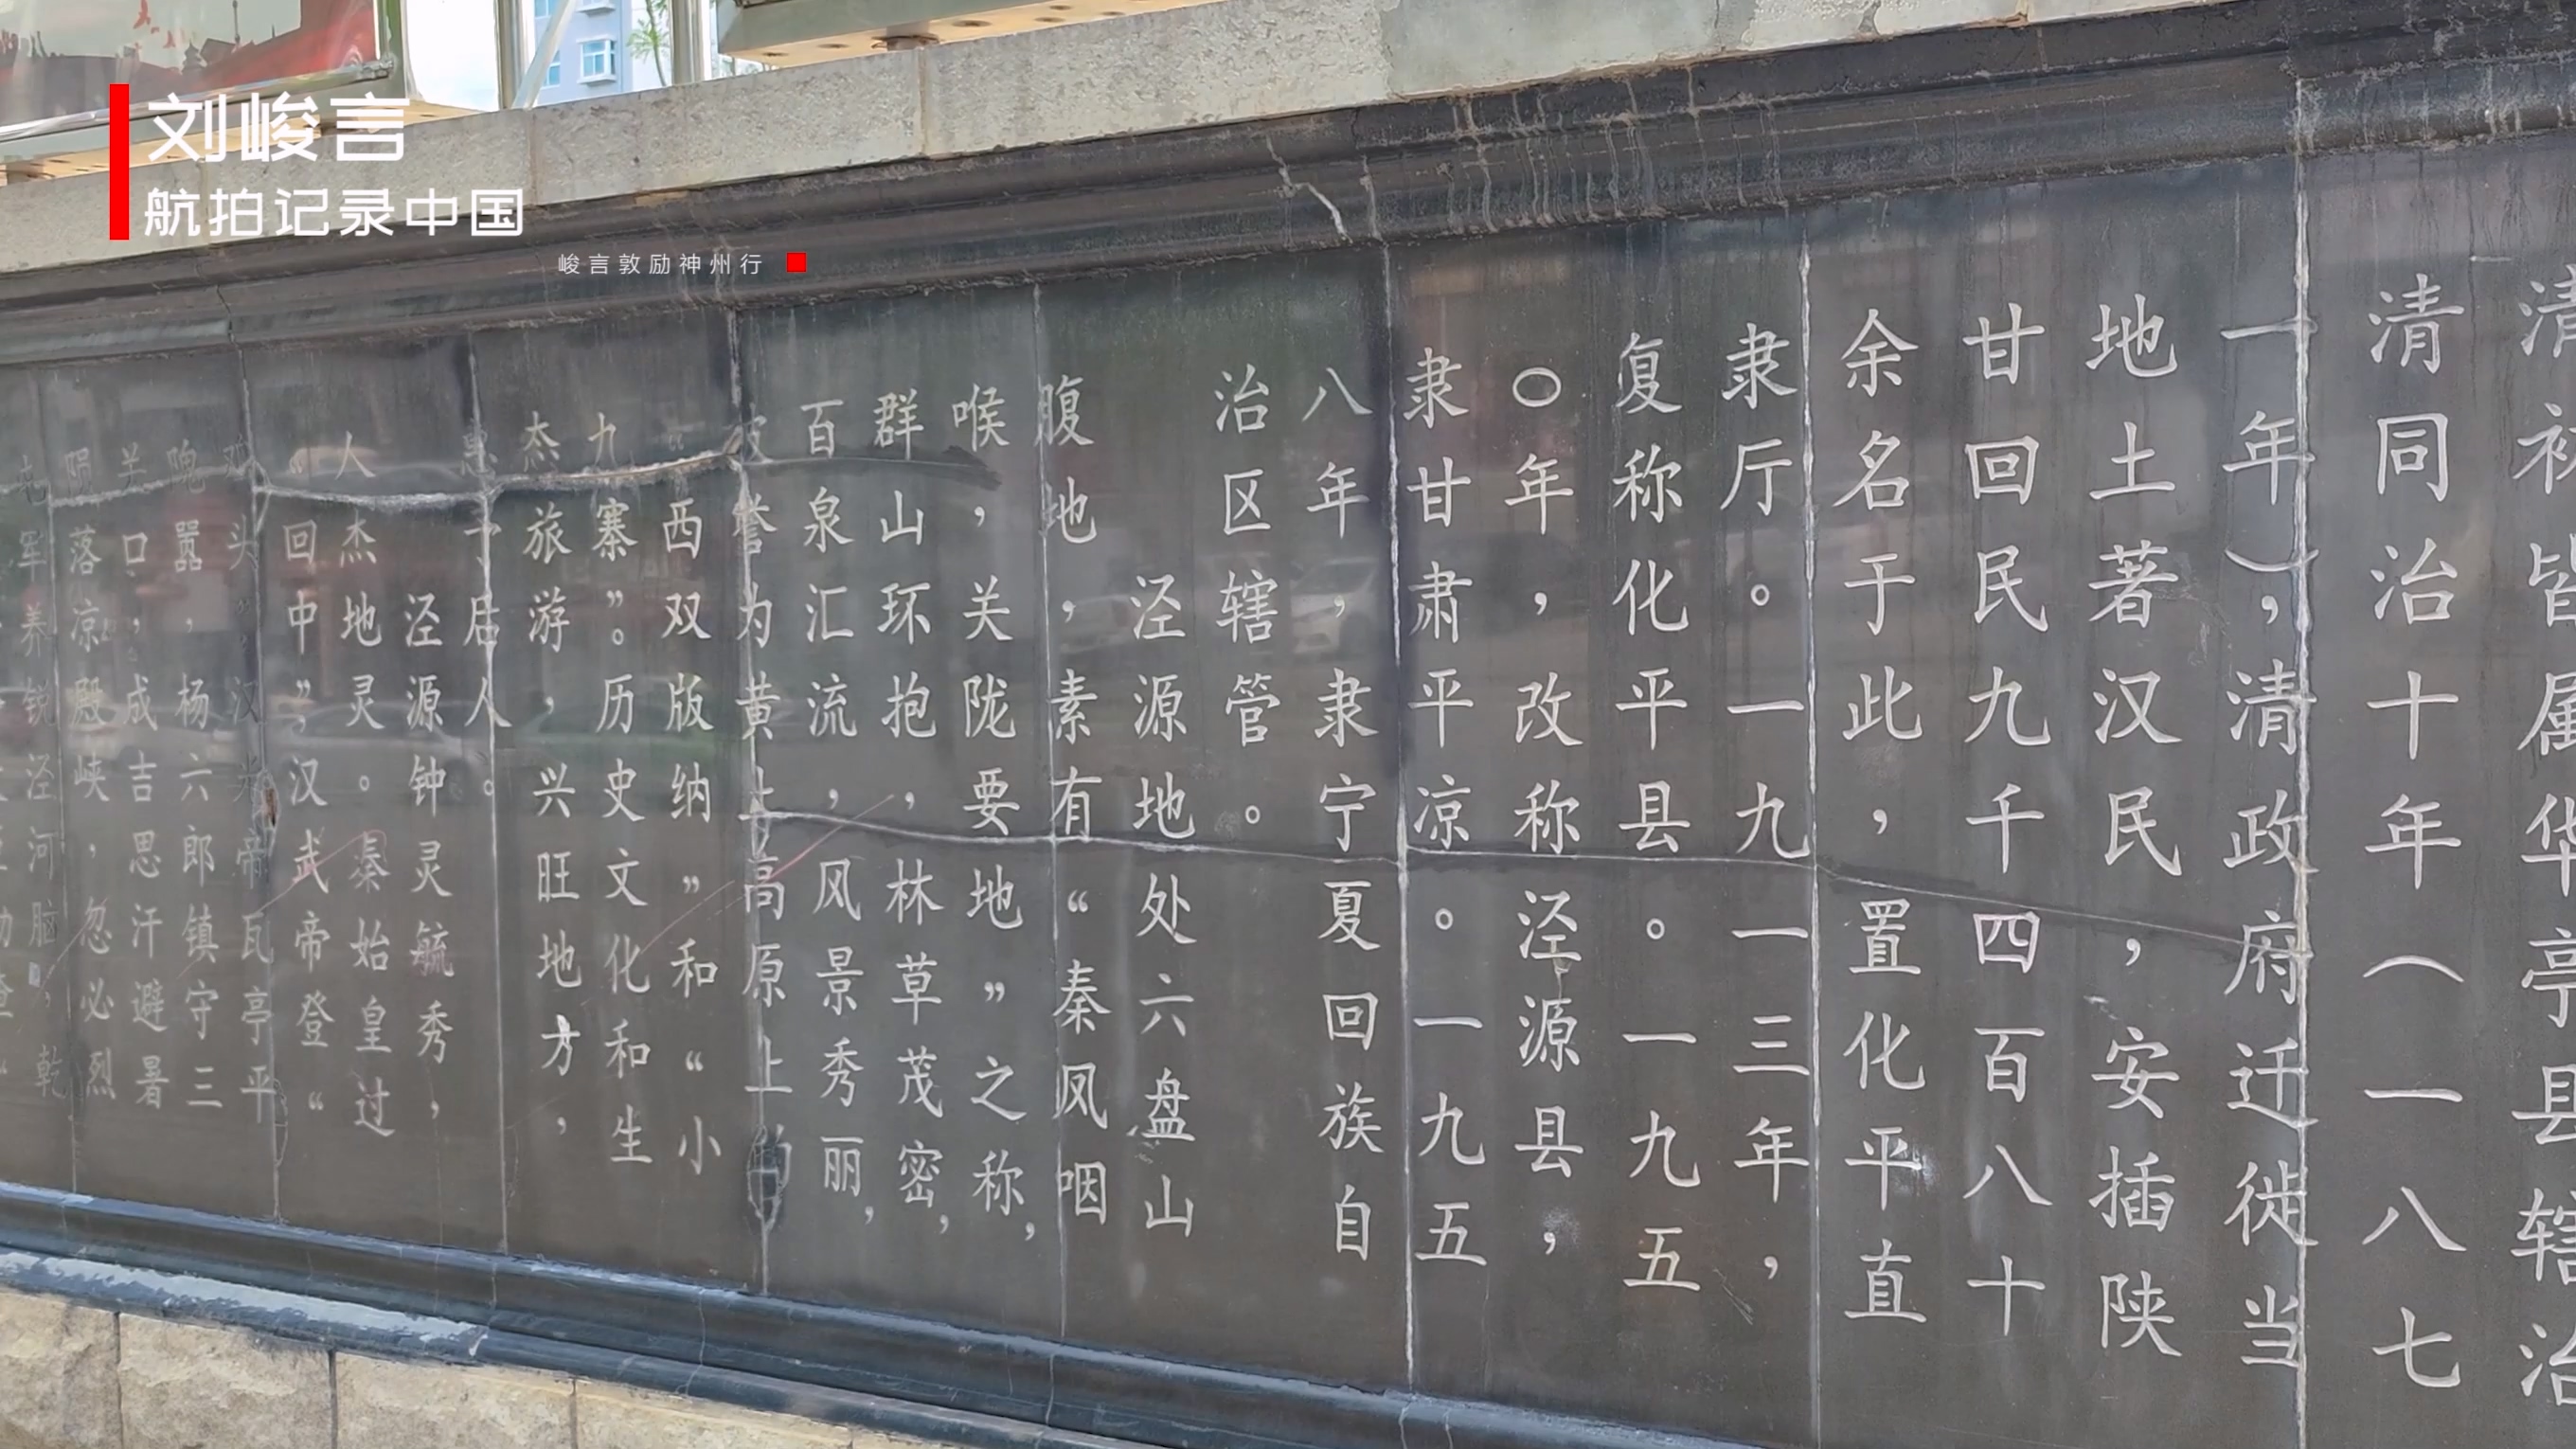 刘峻言
航拍记录中国
峻言敦励神州行
清初皆属华亭县辖治
清同治十年（一八七
一年），清政府迁徙当
地土著汉民，安插陕
甘回民九千四百八十
余名于此，置化平直
隶厅。一九一三年，
复称化平县。一九五
〇年，改称泾源县，
隶甘肃平凉。一九五
八年，隶宁夏回族自
治区辖管。
泾源地处六盘山
腹地，素有“秦凤咽
喉，关陇要地”之称，
群山环抱，林草茂密，
百泉汇流，风景秀丽，
被誉为黄土高原上的
“西双版纳”和“小
九寨”。历史文化和生
态旅游，兴旺地方，
惠予后人。
泾源钟灵毓秀，
人杰地灵。秦始皇过
“回中”，汉武帝登“
头”，汉光帝瓦亭平
隗嚣，杨六郎镇守三
关口，成吉思汗避暑
陨落凉殿峡，忽必烈
屯军养锐泾河脑，乾